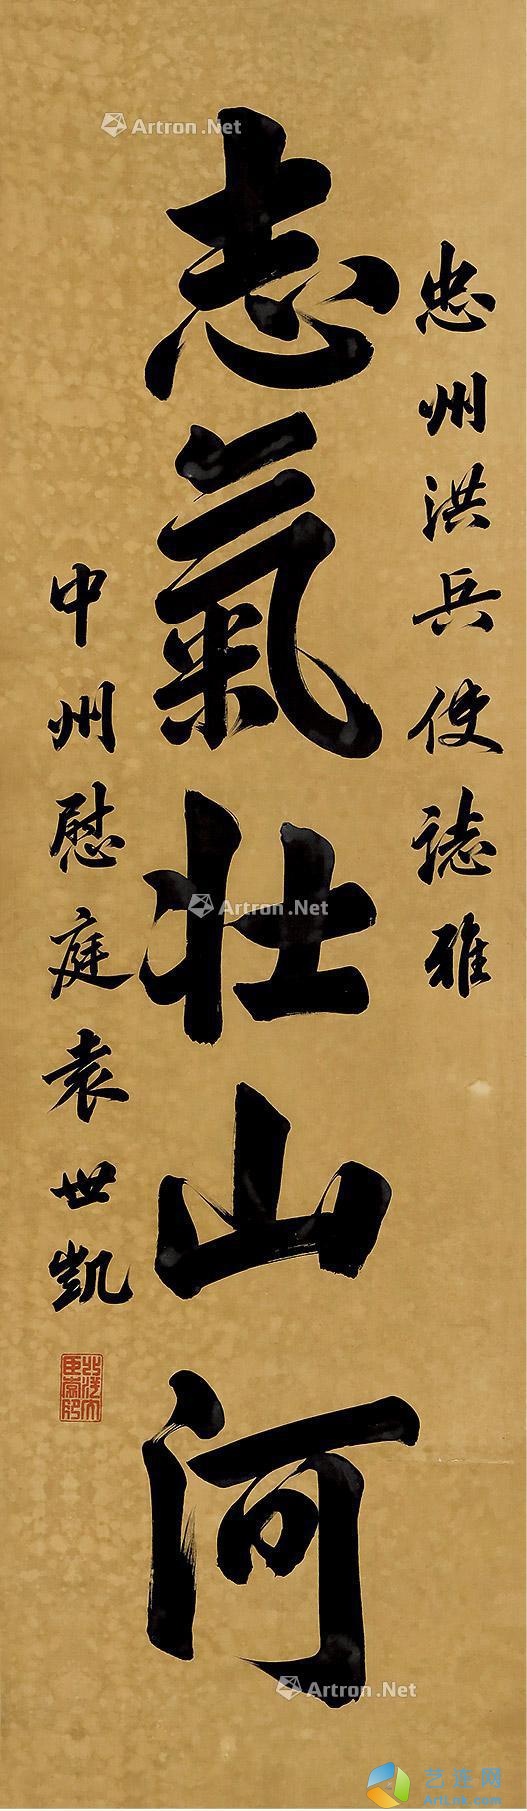 忠州洪兵使誌雅
志氣壯山河
中州慰庭袁世凱
Artron.Net
Artron.Net
Artron.Net
艺连网
ArtLnk.com